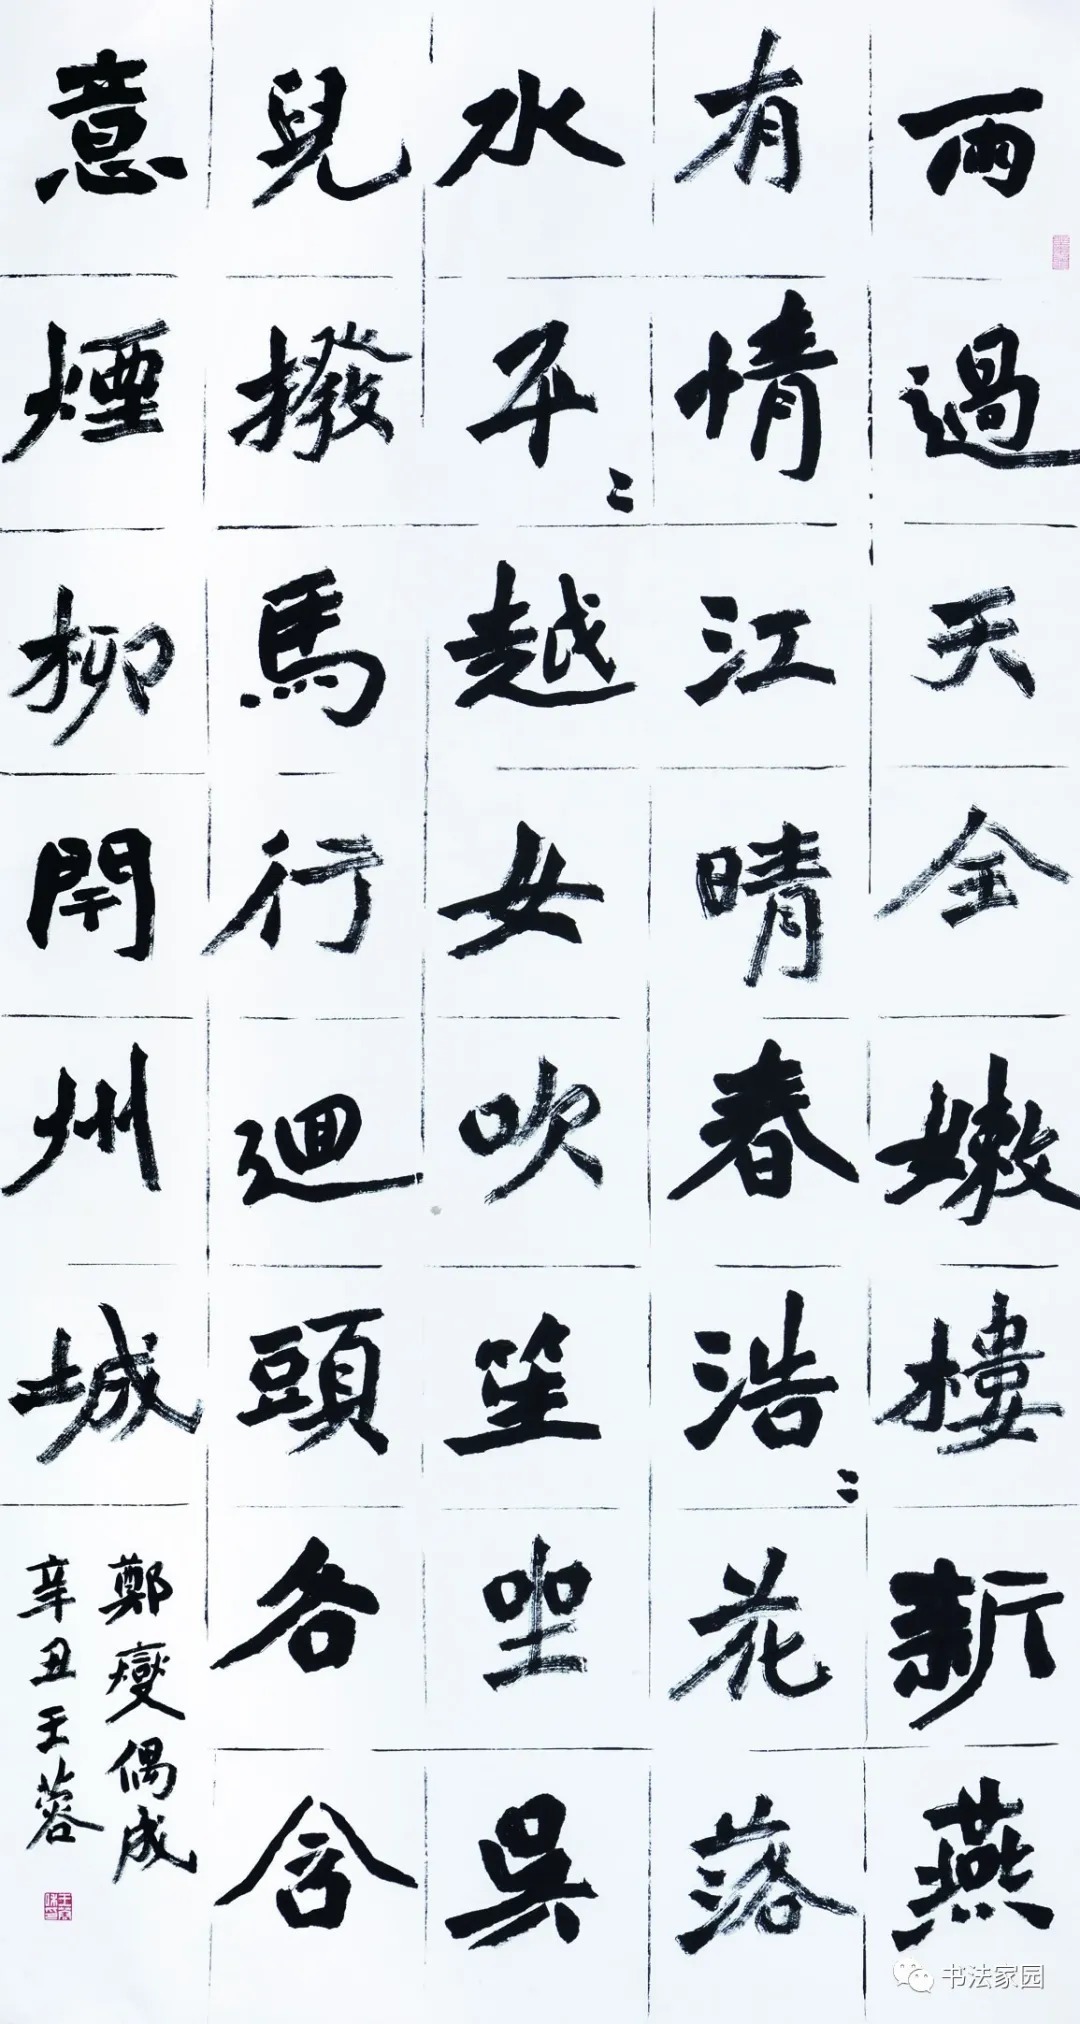 雨過天全嫩樓新燕
有情江晴春浩〻花落
水平〻越女吹笙坐吳
兒撥馬行迴頭各含
意煙柳閈州城
鄭燮偶成
辛丑王蓉
书法家园